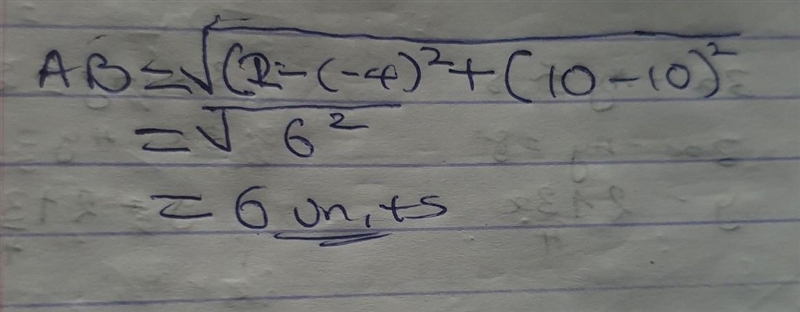 AB = √(2-(-4)²+(10-10)²
= √6²
= 6 units